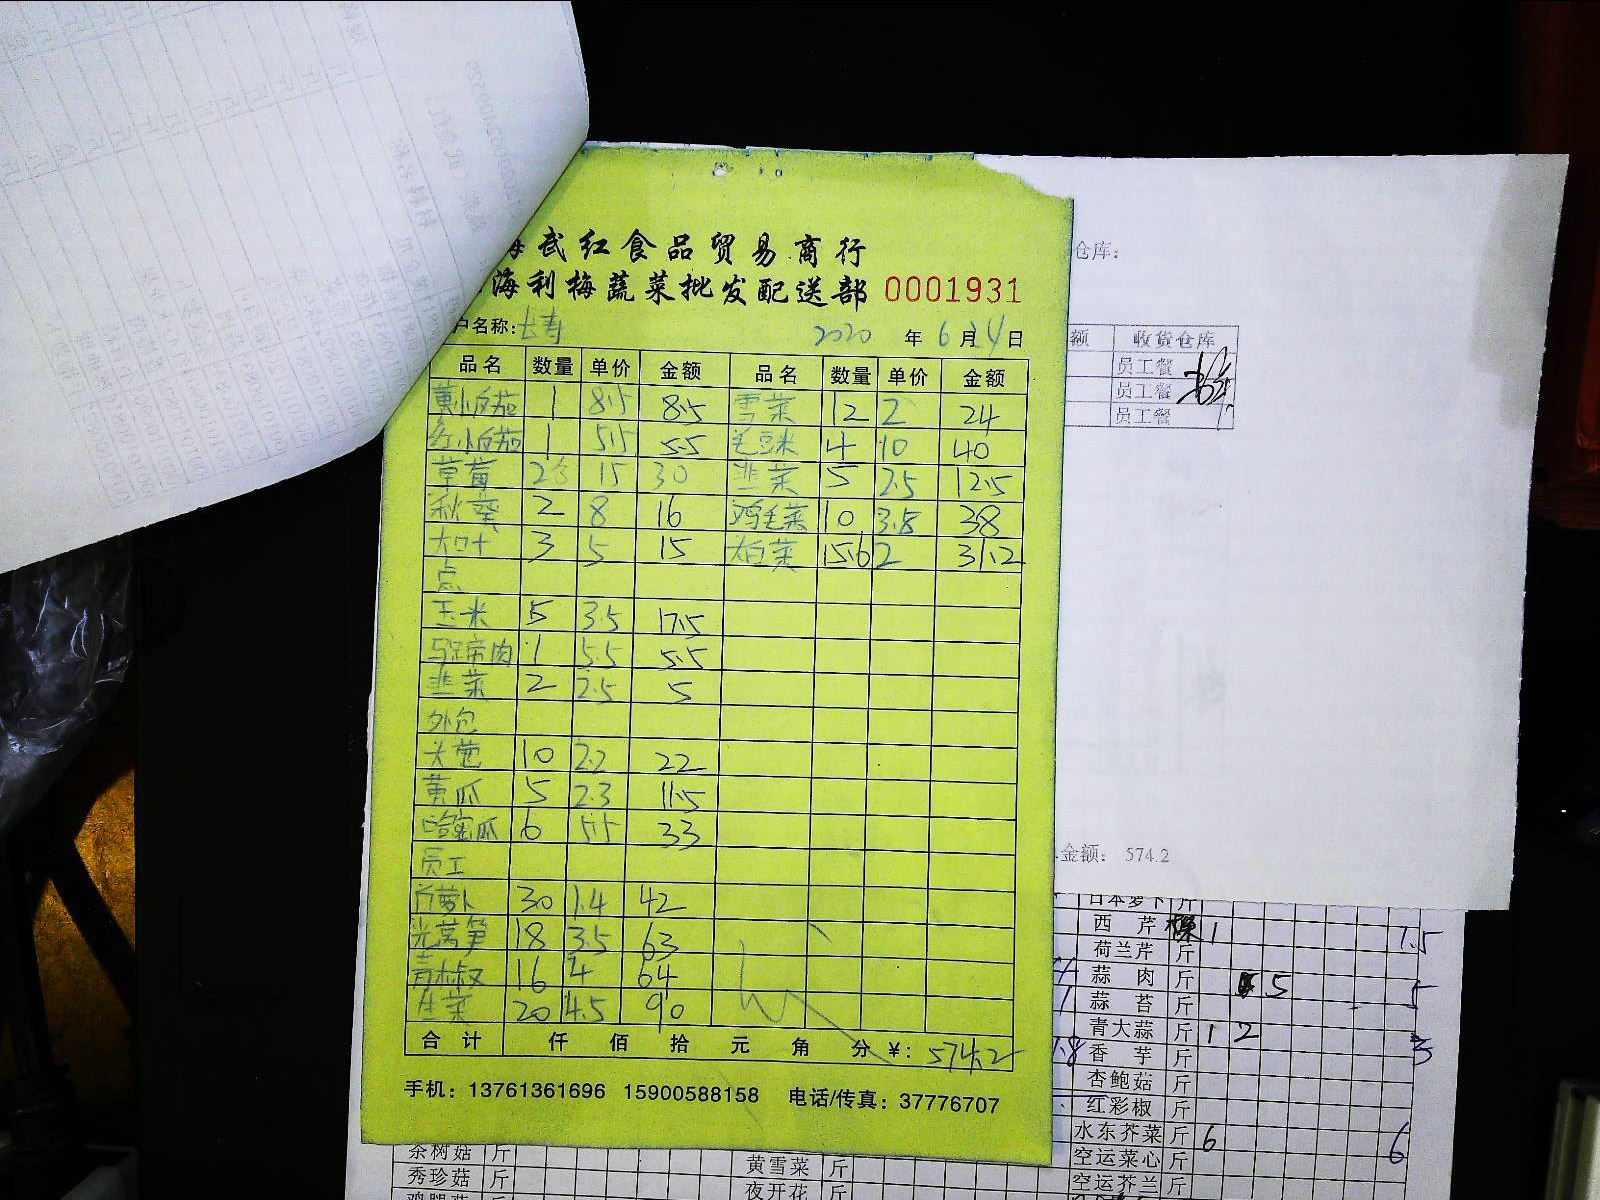 武红食品贸易商行
海利梅蔬菜批发配送部 0001931
户名称: 长寿 2020 年 6 月 24 日
品名 数量 单价 金额 品名 数量 单价 金额
黄小西茄 1 8.5 8.5 雪菜 12 2 24
红小西茄 1 5.5 5.5 毛豆米 4 10 40
草莓 2合 15 30 韭菜 5 2.5 12.5
秋葵 2 8 16 鸡毛菜 10 3.8 38
大口十 3 5 15 大白菜 15.6 2 31.2
点
玉米 5 3.5 17.5
马蹄肉 1 5.5 5.5
韭菜 2 2.5 5
外包
大葱 10 2.2 22
黄瓜 5 2.3 11.5
哈密瓜 6 5.5 33
员工
白萝卜 30 1.4 42
光莴笋 18 3.5 63
青椒 16 4 64
生菜 20 4.5 90
合计 仟 佰 拾 元 角 分 ¥: 574.2
手机: 13761361696 15900588158 电话/传真: 37776707
仓库:
额 收货仓库
员工餐
员工餐
员工餐
金额: 574.2
日本萝卜 斤
西芹 棵 1 1.5
荷兰芹 斤
蒜肉 斤 5 5
蒜苔 斤
青大蒜 斤 1 2 3
香芋 斤
杏鲍菇 斤
红彩椒 斤
水东芥菜 斤 6 6
空运菜心 斤
空运芥兰 斤
茶树菇 斤
秀珍菇 斤
黄雪菜 斤
夜开花 斤